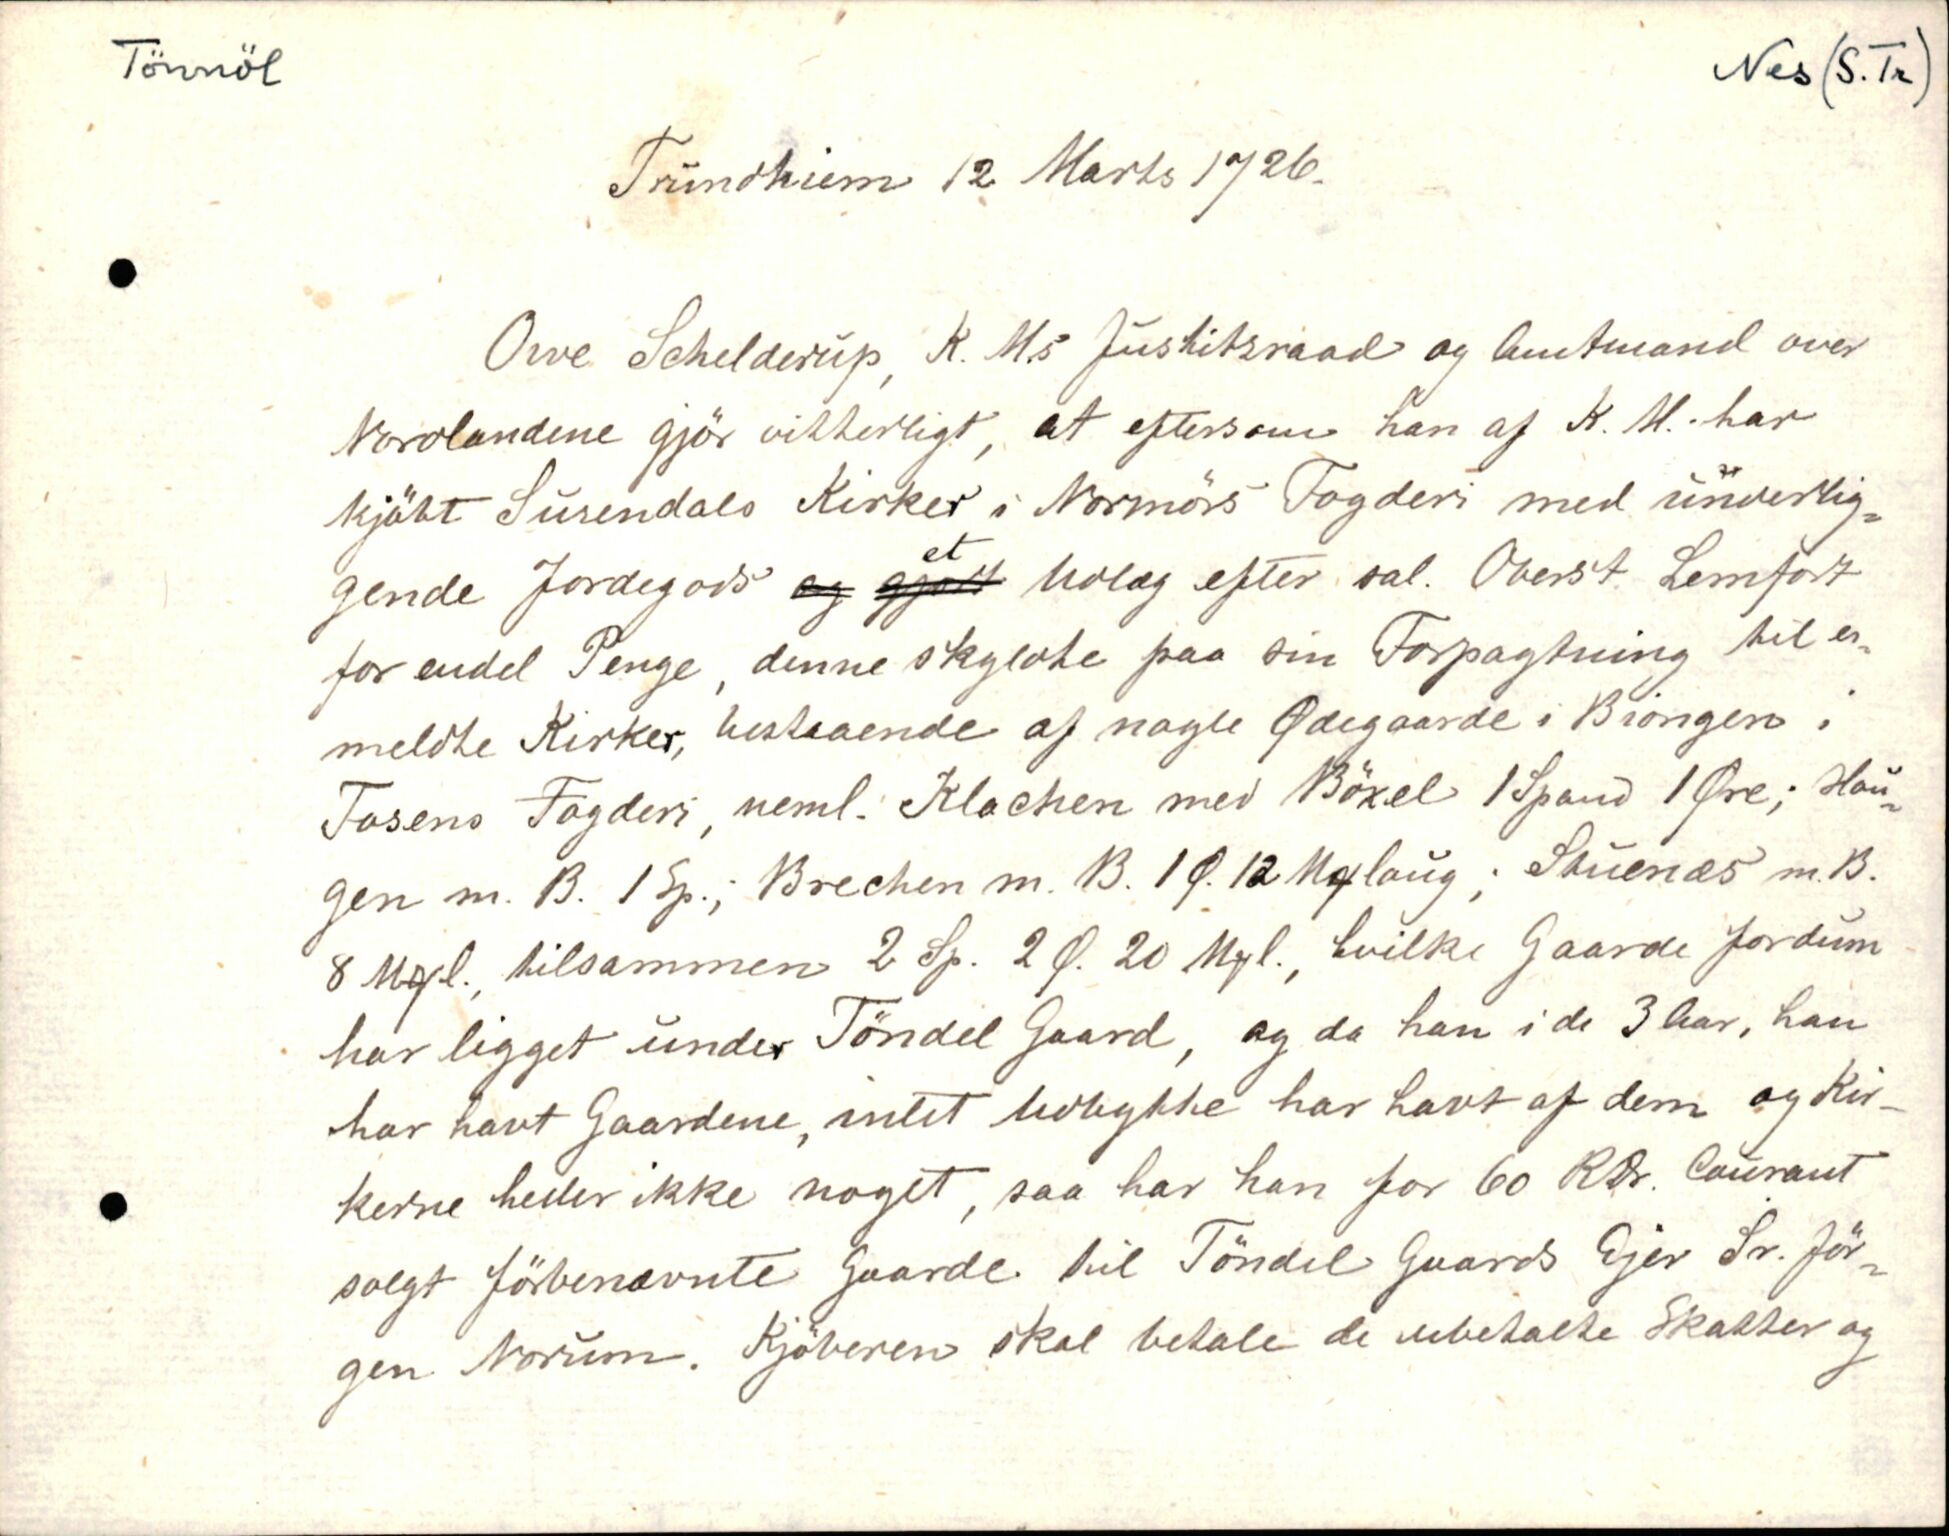 Tönnöl
Nes (S. Tr)
Trundhiem 12 Marts 1726.
Owe Schelderup, K. Ms Justitsraad og Amtmand over
Nordlandene gjör vitterligt, at eftersom han af K. M. har
kjöbt Surendals Kirker i Normörs Fogderi med underlig-
gende Jordegods og gjort et Udlæg efter sal. Oberst Lemfort
for endel Penge, denne skyldte paa sin Forpagtning til er-
meldte Kirker, bestaaende af nogle Ødegaarde i Biongen i
Fosens Fogderi, neml. Klachen med Böxel 1 Spand 1 Øre; Hau-
gen m. B. 1 Sp.; Brechen m. B. 1 Ø. 12 Mql aug; Stuenæs m. B.
8 Mql., tilsammen 2 Sp. 2 Ø. 20 Mql., hvilke Gaarde fordum
har ligget under Töndel Gaard, og da han i de 3 Aar, han
har havt Gaardene, intet Udbytte har havt af dem og Kir-
kerne heller ikke noget, saa har han for 60 RDr. Courant
solgt förbenævnte Gaarde til Töndel Gaards Ejer Sr. Jör-
gen Norum. Kjöberen skal betale de ubetalte Skatter og